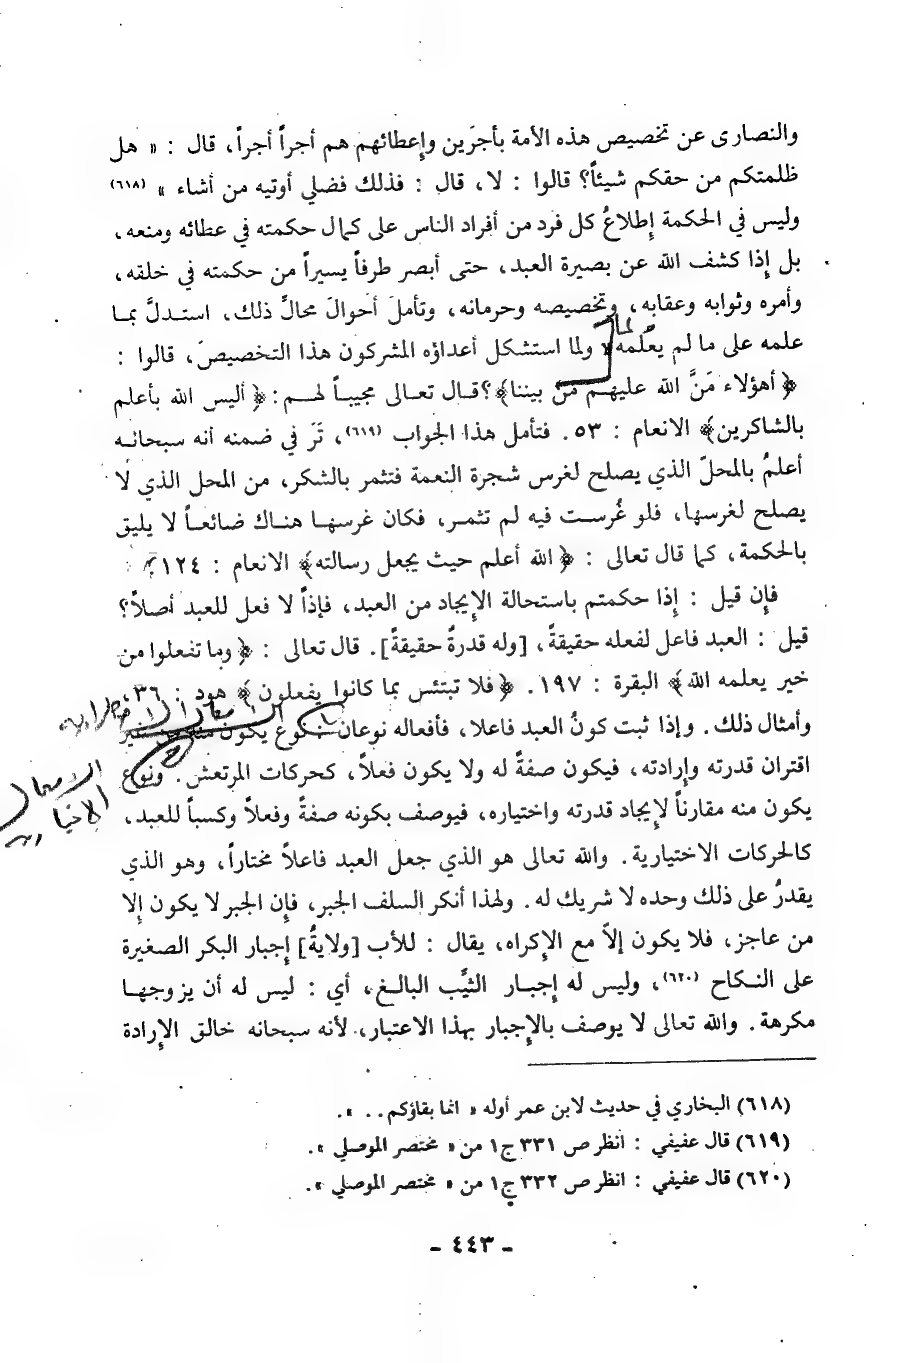 والنصارى عن تخصيص هذه الأمة بأجرَين وإعطائهم هم أجراً أجراً، قال : « هل
ظلمتكم من حقكم شيئاً؟ قالوا : لا، قال : فذلك فضلي أوتيه من أشاء » (٦١٨)
وليس في الحكمة إطلاعُ كل فرد من أفراد الناس على كمال حكمته في عطائه ومنعه،
بل إذا كشف الله عن بصيرة العبد، حتى أبصر طرفاً يسيراً من حكمته في خلقه،
وأمره وثوابه وعقابه، وتخصيصه وحرمانه، وتأملَ أحوالَ محالِّ ذلك، استدلَّ بما
علمه على ما لم يعلمه. ولما استشكل أعداؤه المشركون هذا التخصيصَ، قالوا :
﴿ أهؤلاء مَنَّ الله عليهم مِّن بيننا﴾؟ قال تعالى مجيباً لهم : ﴿ أليس الله بأعلم
بالشاكرين﴾ الانعام : ٥٣. فتأمل هذا الجواب (٦١٩)، تَرَ في ضمنه أنه سبحانه
أعلمُ بالمحلّ الذي يصلح لغرس شجرة النعمة فتثمر بالشكر، من المحل الذي لا
يصلح لغرسها، فلو غُرست فيه لم تثمر، فكان غرسها هناك ضائعاً لا يليق
بالحكمة، كما قال تعالى : ﴿ الله أعلم حيث يجعل رسالته﴾ الانعام : ١٢٤
فإن قيل : إذا حكمتم باستحالة الإيجاد من العبد، فإذاً لا فعل للعبد أصلاً؟
قيل : العبد فاعل لفعله حقيقةً، [وله قدرةٌ حقيقةً]. قال تعالى : ﴿ وما تفعلوا من
خير يعلمه الله﴾ البقرة : ١٩٧. ﴿ فلا تبتئس بما كانوا يفعلون﴾ هود : ٣٦،
وأمثال ذلك. وإذا ثبت كونُ العبد فاعلا، فأفعاله نوعان : نوع يكون منه من غير
اقتران قدرته وإرادته، فيكون صفةً له ولا يكون فعلاً، كحركات المرتعش. ونوع
يكون منه مقارناً لإيجاد قدرته واختياره، فيوصف بكونه صفةً وفعلاً وكسباً للعبد،
كالحركات الاختيارية. والله تعالى هو الذي جعل العبد فاعلاً مختاراً، وهو الذي
يقدرُ على ذلك وحده لا شريك له. ولهذا أنكر السلف الجبر، فإن الجبر لا يكون إلا
من عاجز، فلا يكون إلاّ مع الإكراه، يقال : للأب [ولايةُ] إجبار البكر الصغيرة
على النكاح (٦٢٠)، وليس له إجبار الثيِّب البالغ، أي : ليس له أن يزوجها
مكرهة. والله تعالى لا يوصف بالإجبار بهذا الاعتبار، لأنه سبحانه خالق الإرادة
(٦١٨) البخاري في حديث لابن عمر أوله « انما بقاؤكم . . ».
(٦١٩) قال عفيفي : انظر ص ٣٣١ ج١ من « مختصر الموصلي ».
(٦٢٠) قال عفيفي : انظر ص ٣٣٢ ج١ من « مختصر الموصلي ».
- ٤٤٣ -